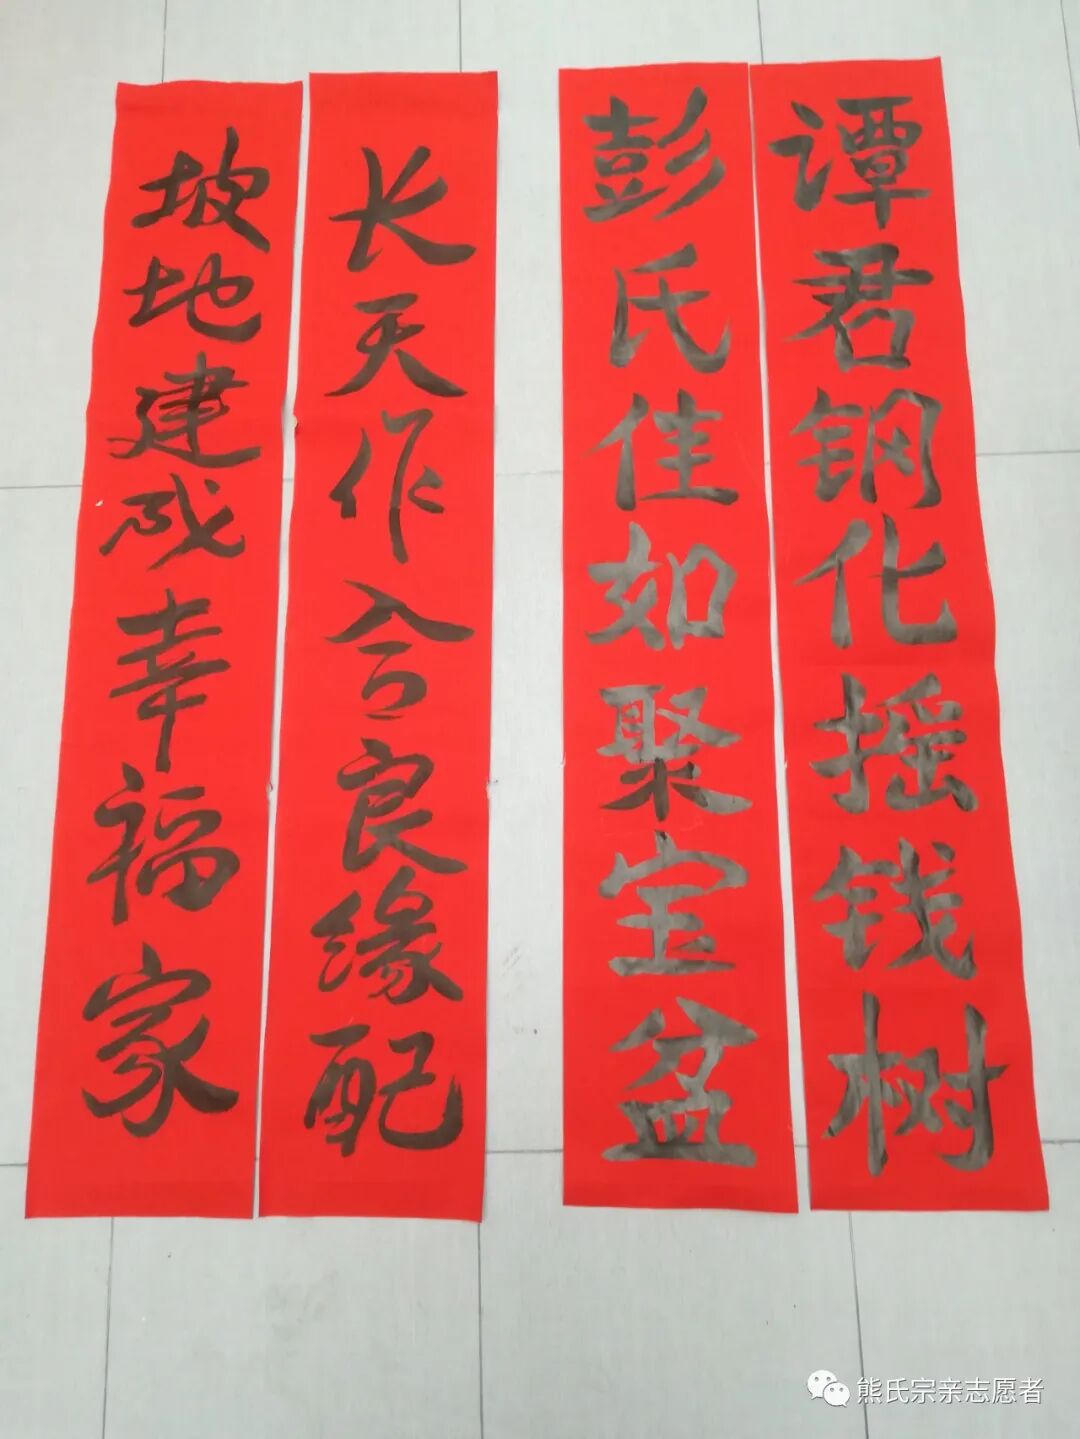 谭君钢化摇钱树
彭氏佳如聚宝盆
长天作合良缘配
坡地建成幸福家
熊氏宗亲志愿者